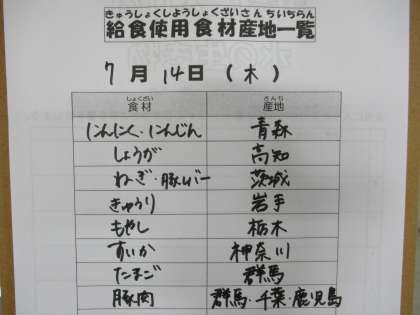 きゅうしょくしようしょくざいさんちいちらん
給食使用食材産地一覧
7月14日(木)
しょくざい さんち
食材 産地
にんにく・にんじん 青森
しょうが 高知
ねぎ・豚レバー 茨城
きゅうり 岩手
もやし 栃木
すいか 神奈川
たまご 群馬
豚肉 群馬・千葉・鹿児島